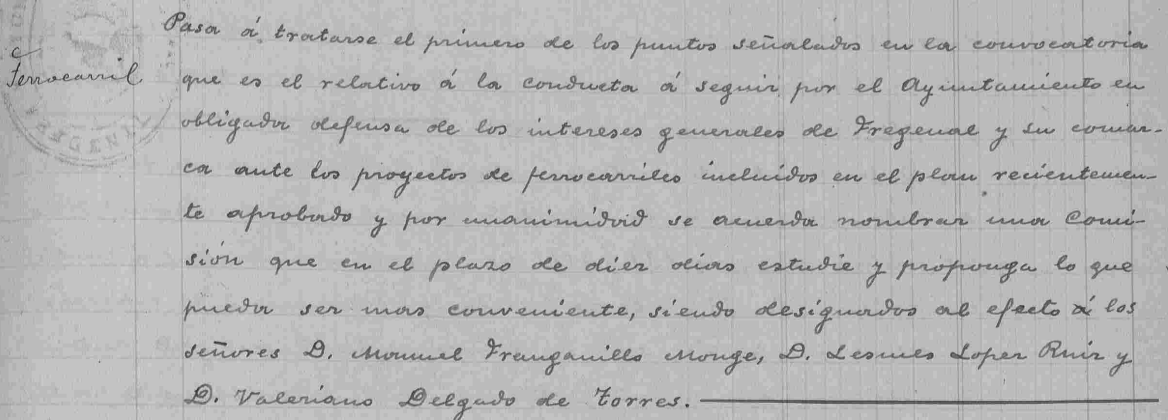 Pasa á tratarse el primero de los puntos señalados en la convocatoria
Ferrocarril
que es el relativo á la conducta á seguir por el Ayuntamiento en
obligada defensa de los intereses generales de Fregenal y su comar-
ca ante los proyectos de ferrocarriles incluidos en el plan recientemen-
te aprobado y por unanimidad se acuerda nombrar una Comi-
sión que en el plazo de diez dias estudie y proponga lo que
pueda ser mas conveniente, siendo designados al efecto á los
señores D. Manuel Tranganillo Monge, D. Lesmes Lopez Ruiz y
D. Valeriano Delgado de Torres.